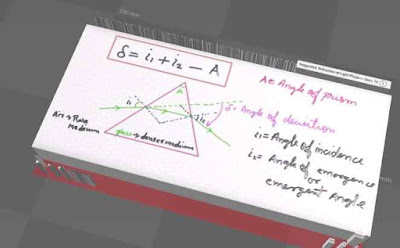 δ = i₁ + i₂ − A
A → Angle of prism
A
i₁
i₂
δ → Angle of deviation
Air → Rare
Medium
glass → denser medium
i₁ = Angle of incidence
i₂ = Angle of emergence
or
emergent Angle